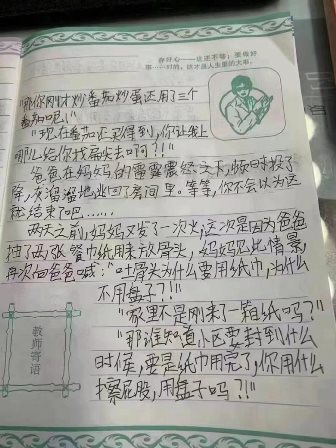 存好心——这还不够；要做好
事……一对的，这才是人生里的大事。
"那你刚才炒番茄炒蛋还用了三个
番茄吧！"
"现在番茄还买得到，你让我上
哪儿给你找扁尖去啊？！"
爸爸在妈妈的雷霆震怒之下，顿时投了
降，灰溜溜地逃回了房间里。等等，你不会以为这
就结束了吧……
两天之前，妈妈又发了一次火，这次是因为爸爸
抽了两张餐巾纸用来放骨头，妈妈见此情景，
再次向爸爸喊："吐骨头为什么要用纸巾，为什么
不用盘子？！"
"家里不是刚来了一箱纸吗？"
"那谁知道小区要封到什么
时候，要是纸巾用完了，你用什么
擦屁股，用盘子吗？！"
教师寄语